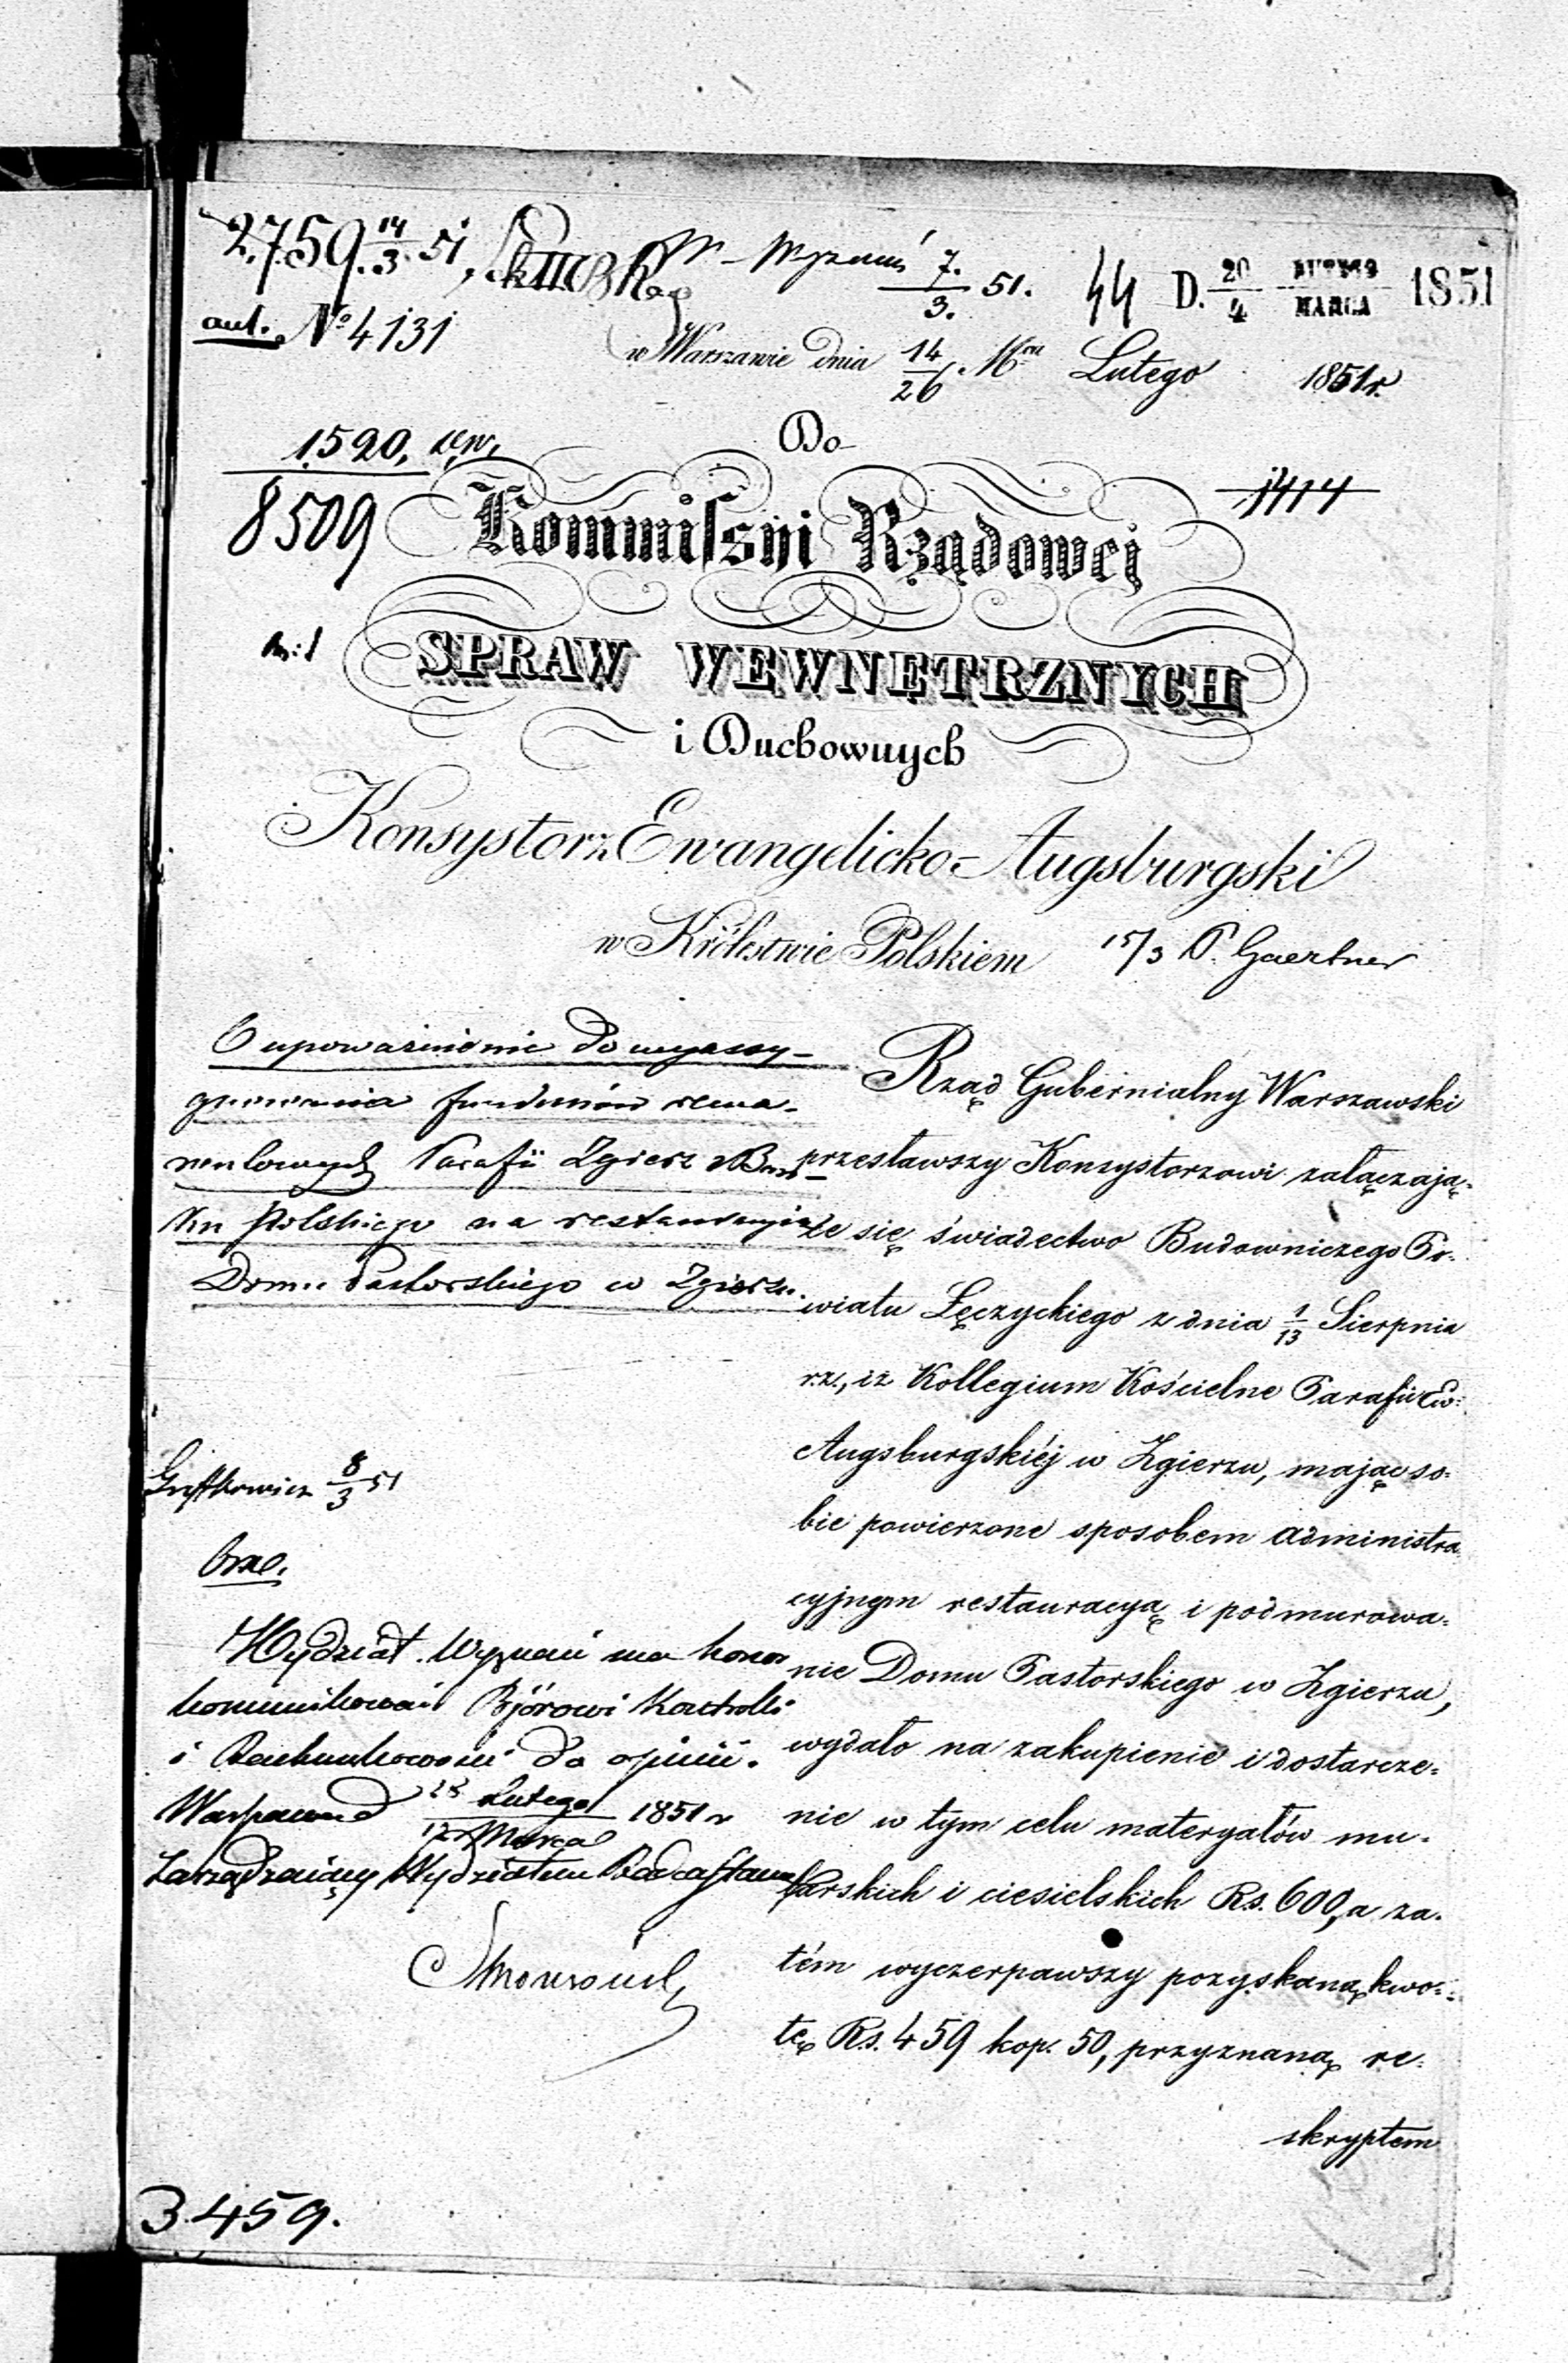 2759. 14/3. 51,
W. Wyznań 7./3. 51.
44 D. 20/4 LUTEGO/MARCA 1851
ant. No 4131
w Warszawie dnia 14/26 Mca Lutego 1851 r.
1520,
8509
Do
1414
Kommissyi Rządowej
SPRAW WEWNĘTRZNYCH
i Duchownych
Konsystorz Ewangelicko-Augsburgski
w Królestwie Polskiem
15/3 P. Gaertner
O upoważnienie do wyassy-
gnowania funduszów rema-
nentowych Parafii Zgierz z Ban-
ku Polskiego na restauracyią
Domu Pastorskiego w Zgierzu.
Rząd Gubernialny Warszawski
przesławszy Konsystorzowi załączają-
ce się świadectwo Budowniczego Po-
wiatu Łęczyckiego z dnia 1/13 Sierpnia
r.z., iż Kollegium Kościelne Parafii Ew:
Augsburgskiéj w Zgierzu, mając so-
bie powierzone sposobem administra
cyjnym restauracyą i podmurowa-
nie Domu Pastorskiego w Zgierzu,
wydało na zakupienie i dostarcze-
nie w tym celu materyałów mu-
larskich i ciesielskich Rs. 600, a za-
tém wyczerpawszy pozyskaną kwo-
tę Rs. 459 kop. 50, przyznaną re-
skryptem
8/3 51
Wydział Wyznań ma honor
kommunikować Bjórowi Kontrolli
i Rachunkowości do opinii.
Warszawa d 28 Lutego/12 Marca 1851 r
Zarządzający Wydziałem Radca Stanu
3459.